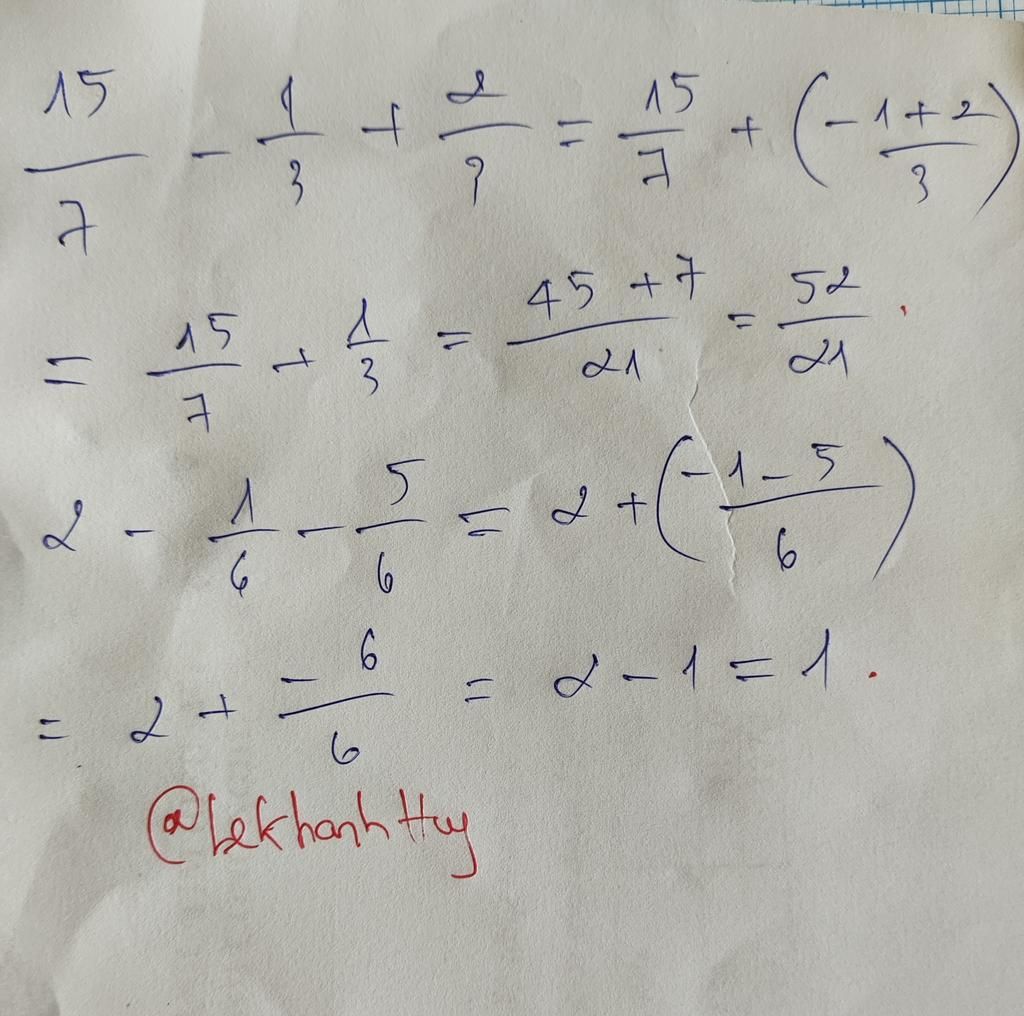 15/7 - 1/3 + 2/3 = 15/7 + (-1+2/3)
= 15/7 + 1/3 = 45+7/21 = 52/21.
2 - 1/6 - 5/6 = 2 + (-1-5/6)
= 2 + -6/6 = 2 - 1 = 1.
@Lekhanh Huy